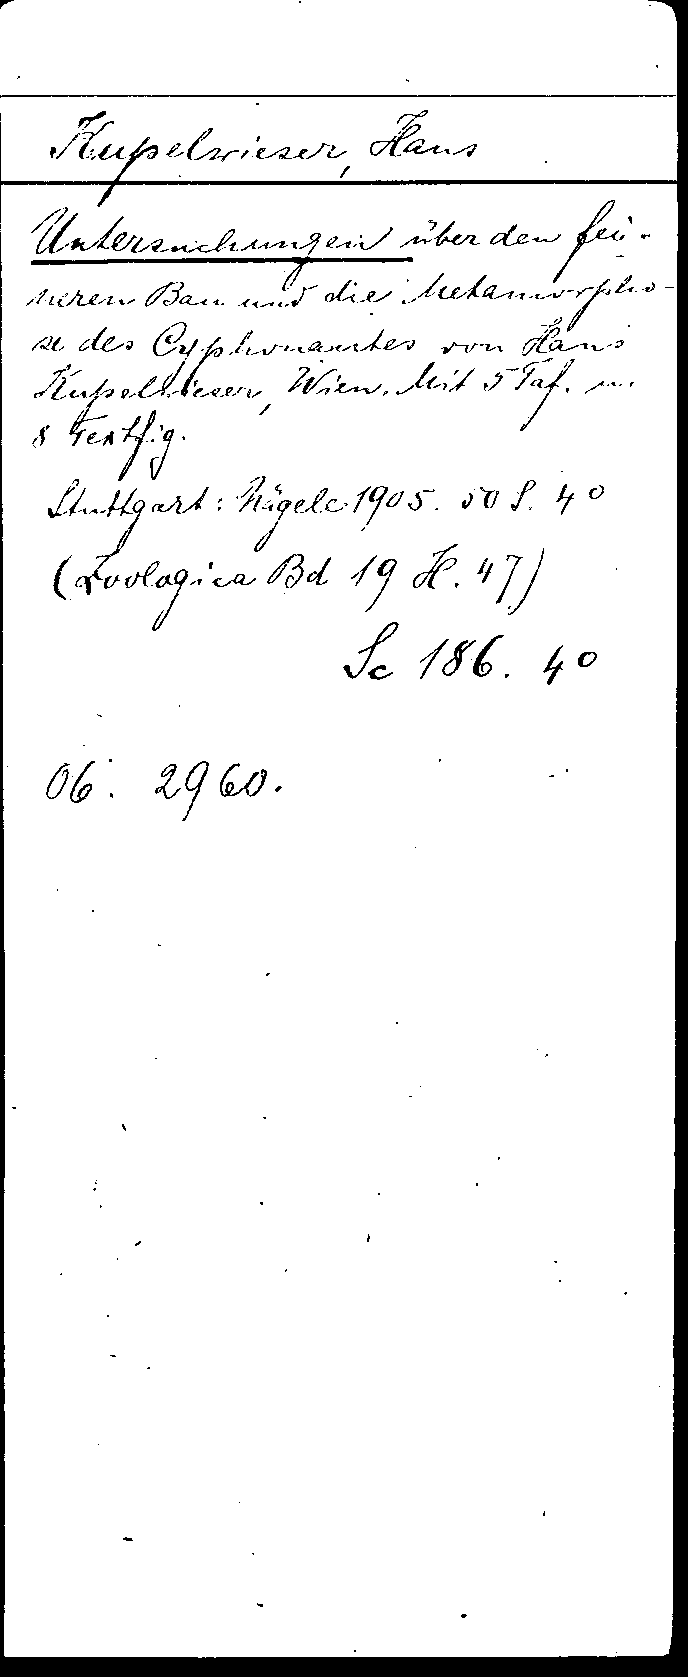 Kupelwieser, Hans
Untersuchungen über den fei-
neren Bau und die Metamorpho-
se des Cyphonautes von Hans
Kupelwieser, Wien. Mit 5 Taf. u.
8 Textfig.
Stuttgart: Nägele 1905. 50 S. 4°
(Zoologica Bd 19 H. 47)
Sc 186. 4°
06. 2960.